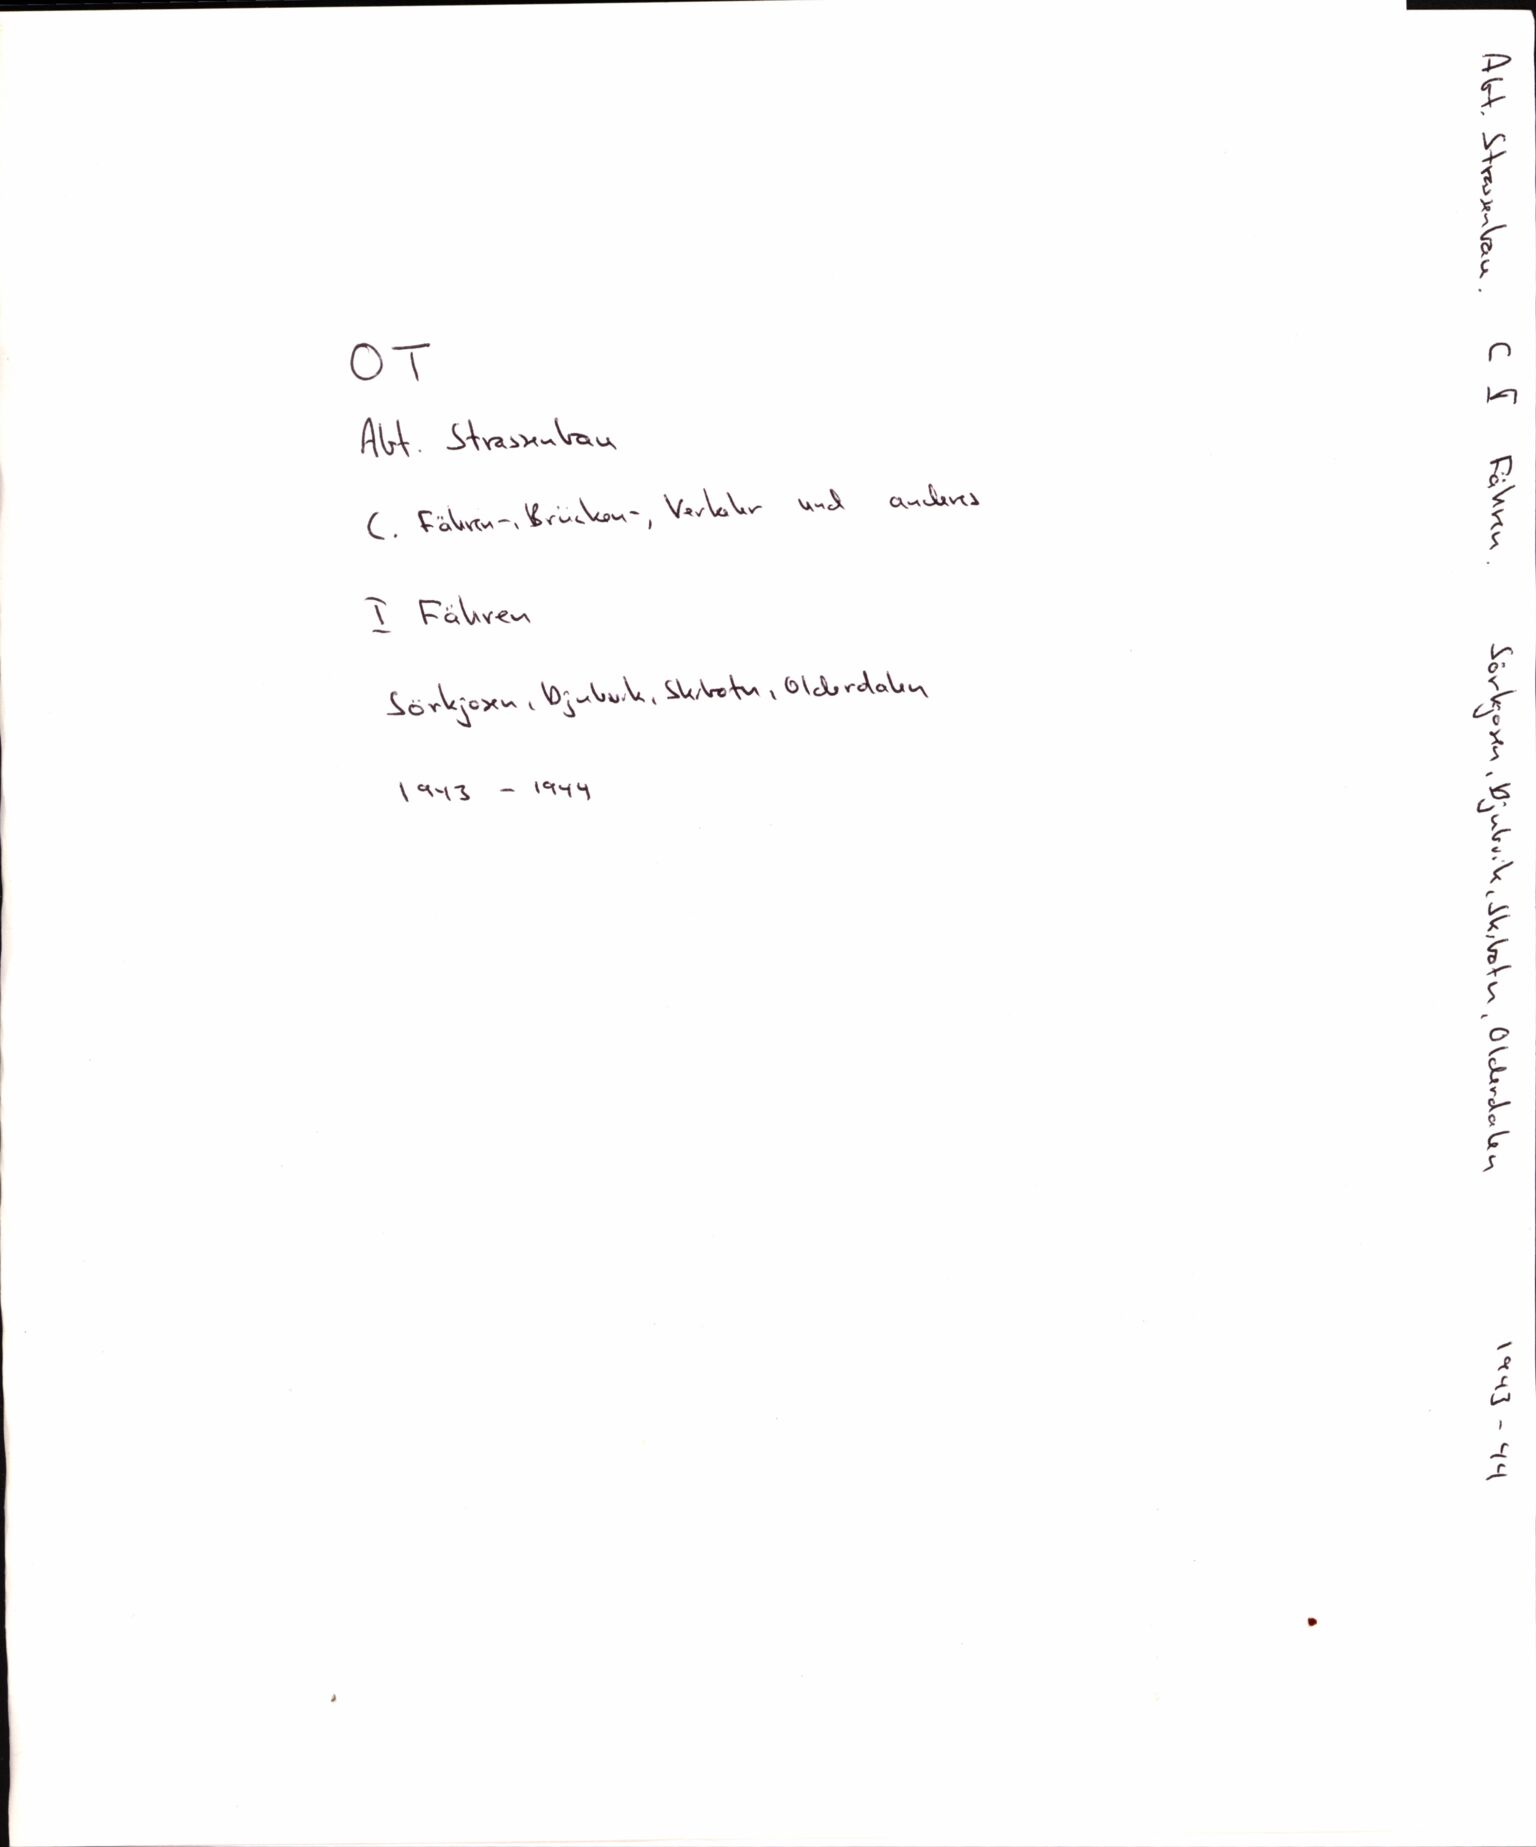 OT
Abt. Strassenbau
C. Fähren-, Brücken-, Verkehr und anderes
I Fähren
Sörkjosen, Djubvik, Skibotn, Olderdalen
1943 - 1944
Abt. Strassenbau. C I Fähren. Sörkjosen, Djubvik, Skibotn, Olderdalen 1943 - 44